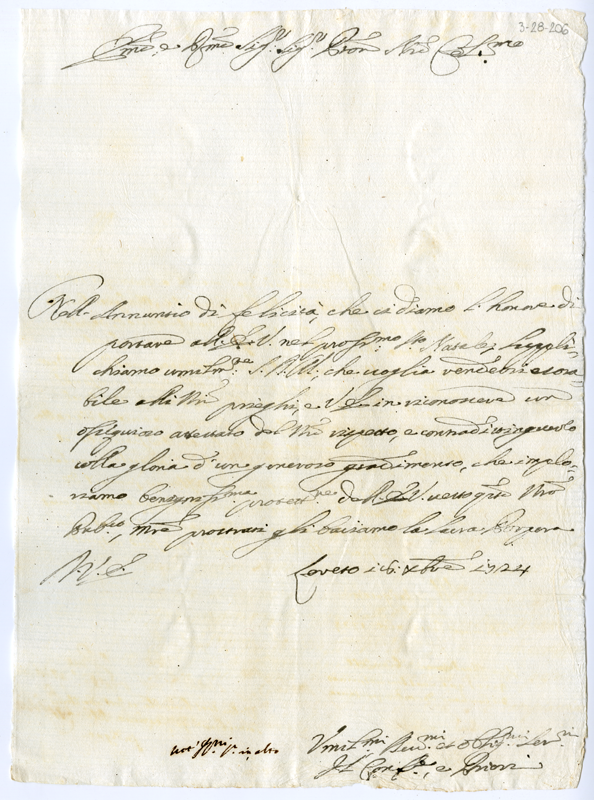 3-28-206
Em̃o e Rm̃o Sig.r Sig.r Pron̄ Nr̃o Col.mo
Nell'Annuntio di felicità, che ci diamo l'honore di
portare all'E.V. nel prossimo Sto Natale, suppli-
chiamo umilm.te S.D.M., che voglia renderci esora-
bile alli Nr̃i prieghi, e V.E. in riconoscere un
ossequioso attestato del Nr̃o rispetto, e contradistinguerlo
colla gloria d'un generoso gradimento, che implo-
riamo benigniss.ma protett.ne dell'E.V. verso q.sto Nr̃o
Pub.co, m̃re prostrati gli baciamo la Sacra Porpora
D.V.E.
Loreto 16. Xbre 1724
Umil.mi Dev.mi et Oblig.mi Ser.ri
Il Conf.re, e Priori